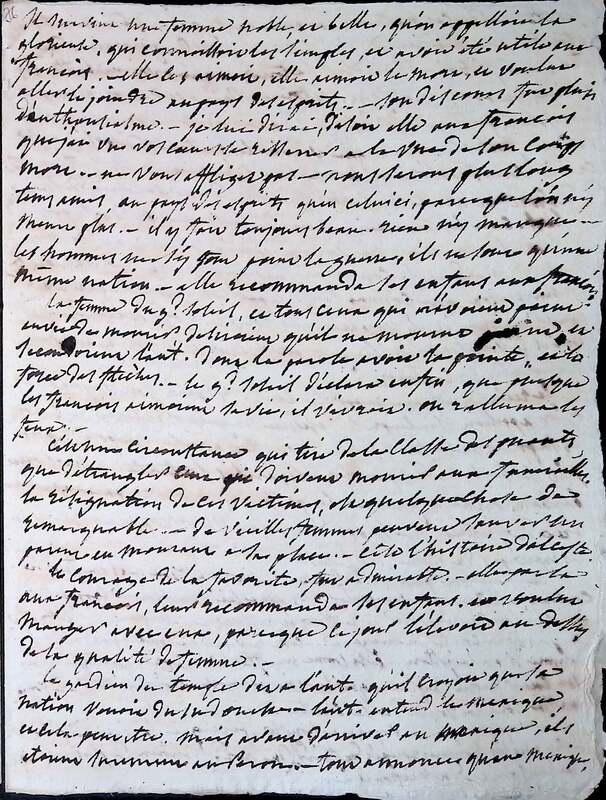 216
Il survint une femme noble, et belle, qu'on appelloit la
glorieuse, qui connoissoit les simples, et avoit été utile aux
françois. - elle les aimoit, elle aimoit le mort, et vouloit
aller le joindre au pays des esprits. - son discours fut plein
d'enthousiasme. - je lui dirai, disoit elle aux françois
que j'ai vu vos cœurs se resserrer a la vue de son corps
mort. - ne vous affligez pas - nous serons plus long
tems amis, au pays des esprits qu'en celuici, parceque l'on n'y
meurt plus. - il y fait toujours beau. rien n'y manque. -
les hommes ne s'y font point la guerre, ils ne font qu'une
même nation. - elle recommanda ses enfans aux françois.
la femme du gd soleil, et tous ceux qui n'avoient point
envie de mourir desiroient qu'il ne mourut et
secondoient l'aut. dont la parole avoit la pointe, et la
force des flèches. - le gd soleil déclara enfin, que puisque
les françois aimoient sa vie, il vivroit. on ralluma les
feux. -
C'est une circonstance qui tire de la classe des parents
que d'étrangler ceux qui doivent mourir aux funérailles.
la résignation de ces victimes, a quelque chose de
remarquable. - de vieilles femmes peuvent sauver un
parent en mourant a sa place. - c'est l'histoire d'alceste
le courage de la favorite, fut admirable. - elle parla
aux françois, leur recommanda ses enfans. et voulut
manger avec eux, parceque ce jour l'élevoit au dessus
de la qualité de femme. -
le gardien du temple dit a l'aut. qu'il croyoit que sa
nation venoit du sud ouest - l'aut. entend le mexique
et cela peut être. mais avant d'arriver au mexique, ils
étoient surement au Perou. - tout annonce qu'au mexique,